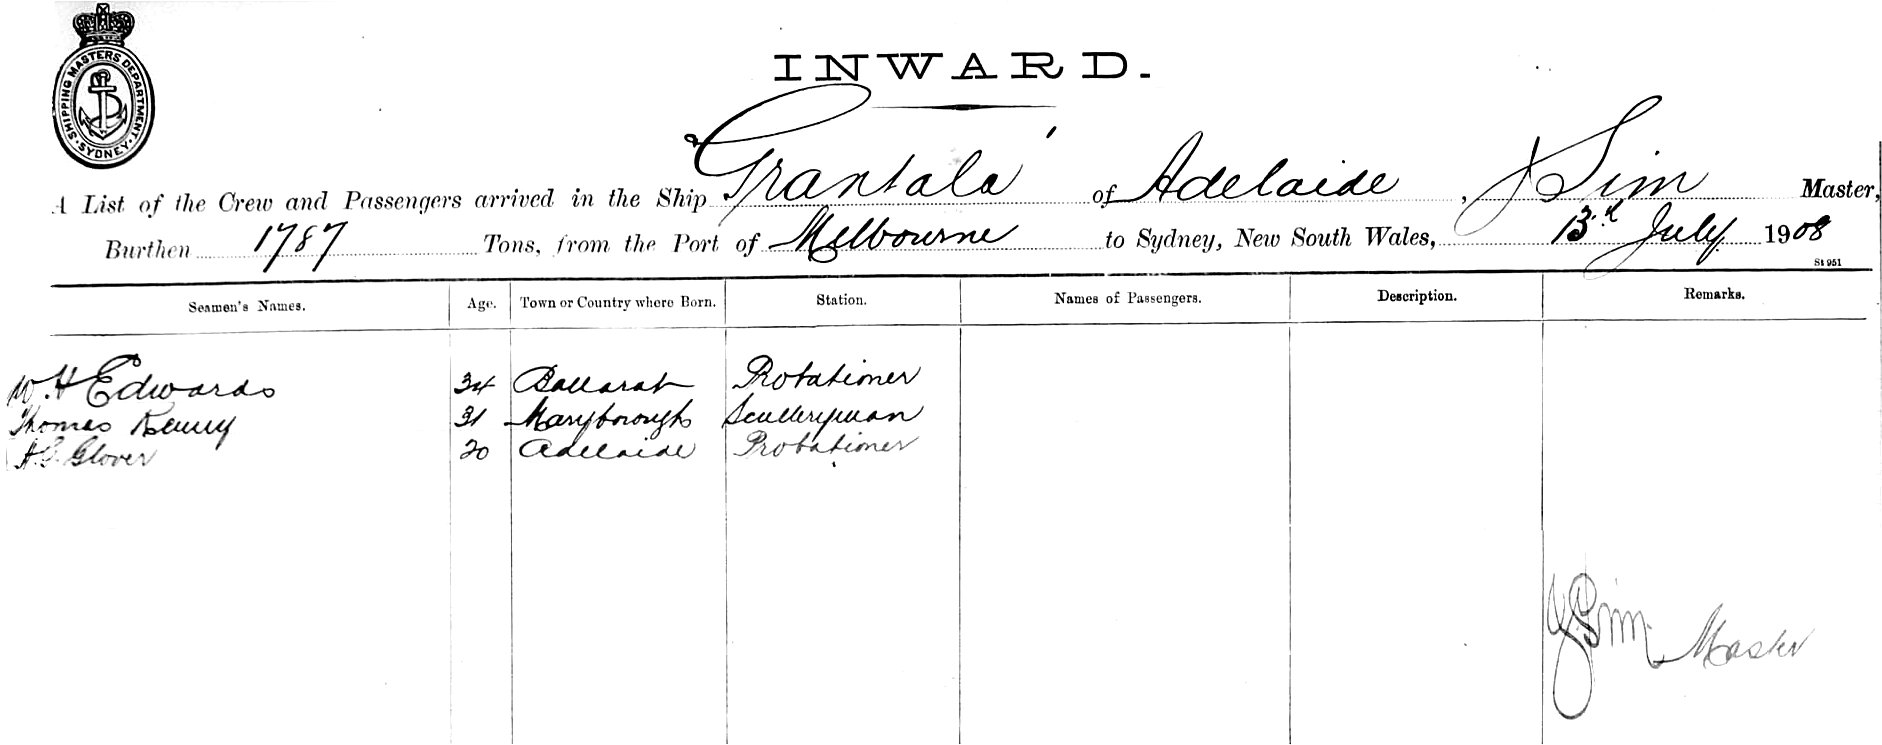 SHIPPING MASTERS DEPARTMENT. SYDNEY.
INWARD.
A List of the Crew and Passengers arrived in the Ship "Grantala" of Adelaide, J Sim Master,
Burthen 1787 Tons, from the Port of Melbourne to Sydney, New South Wales, 13.d July 1908
St 951
Seamen's Names. Age. Town or Country where Born. Station. Names of Passengers. Description. Remarks.
W H Edwards 34 Ballarat Probationer
Thomas Kenny 31 Maryborough Sculleryman
H.G. Glover 20 Adelaide Probationer
J Sim Master